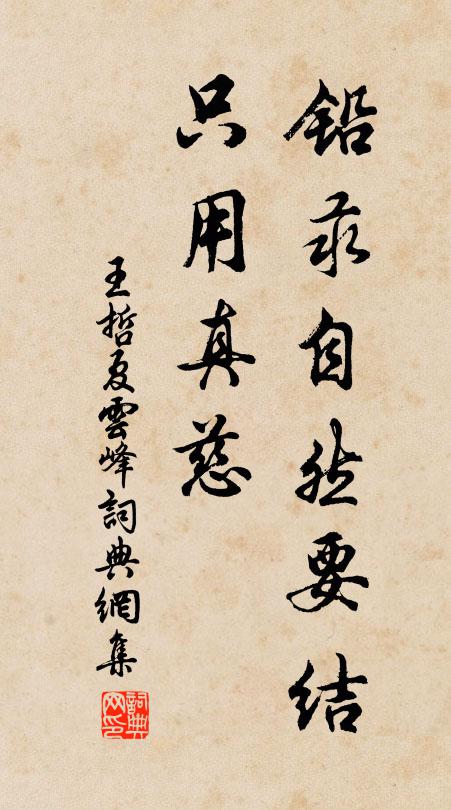 铅汞自然要结
只用真慈
王哲夏雲峰詞典網集
詞典网印